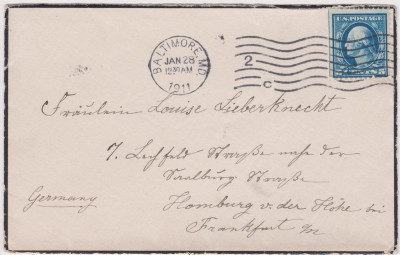 BALTIMORE, MD.
JAN 28
12 30 AM
1911
2
C
U.S. POSTAGE
5
Fräulein Louise Lieberknecht
7. Lechfeld Straße nahe der
Saalburg Straße
Germany
Homburg v. der Höhe bei
Frankfurt a/m